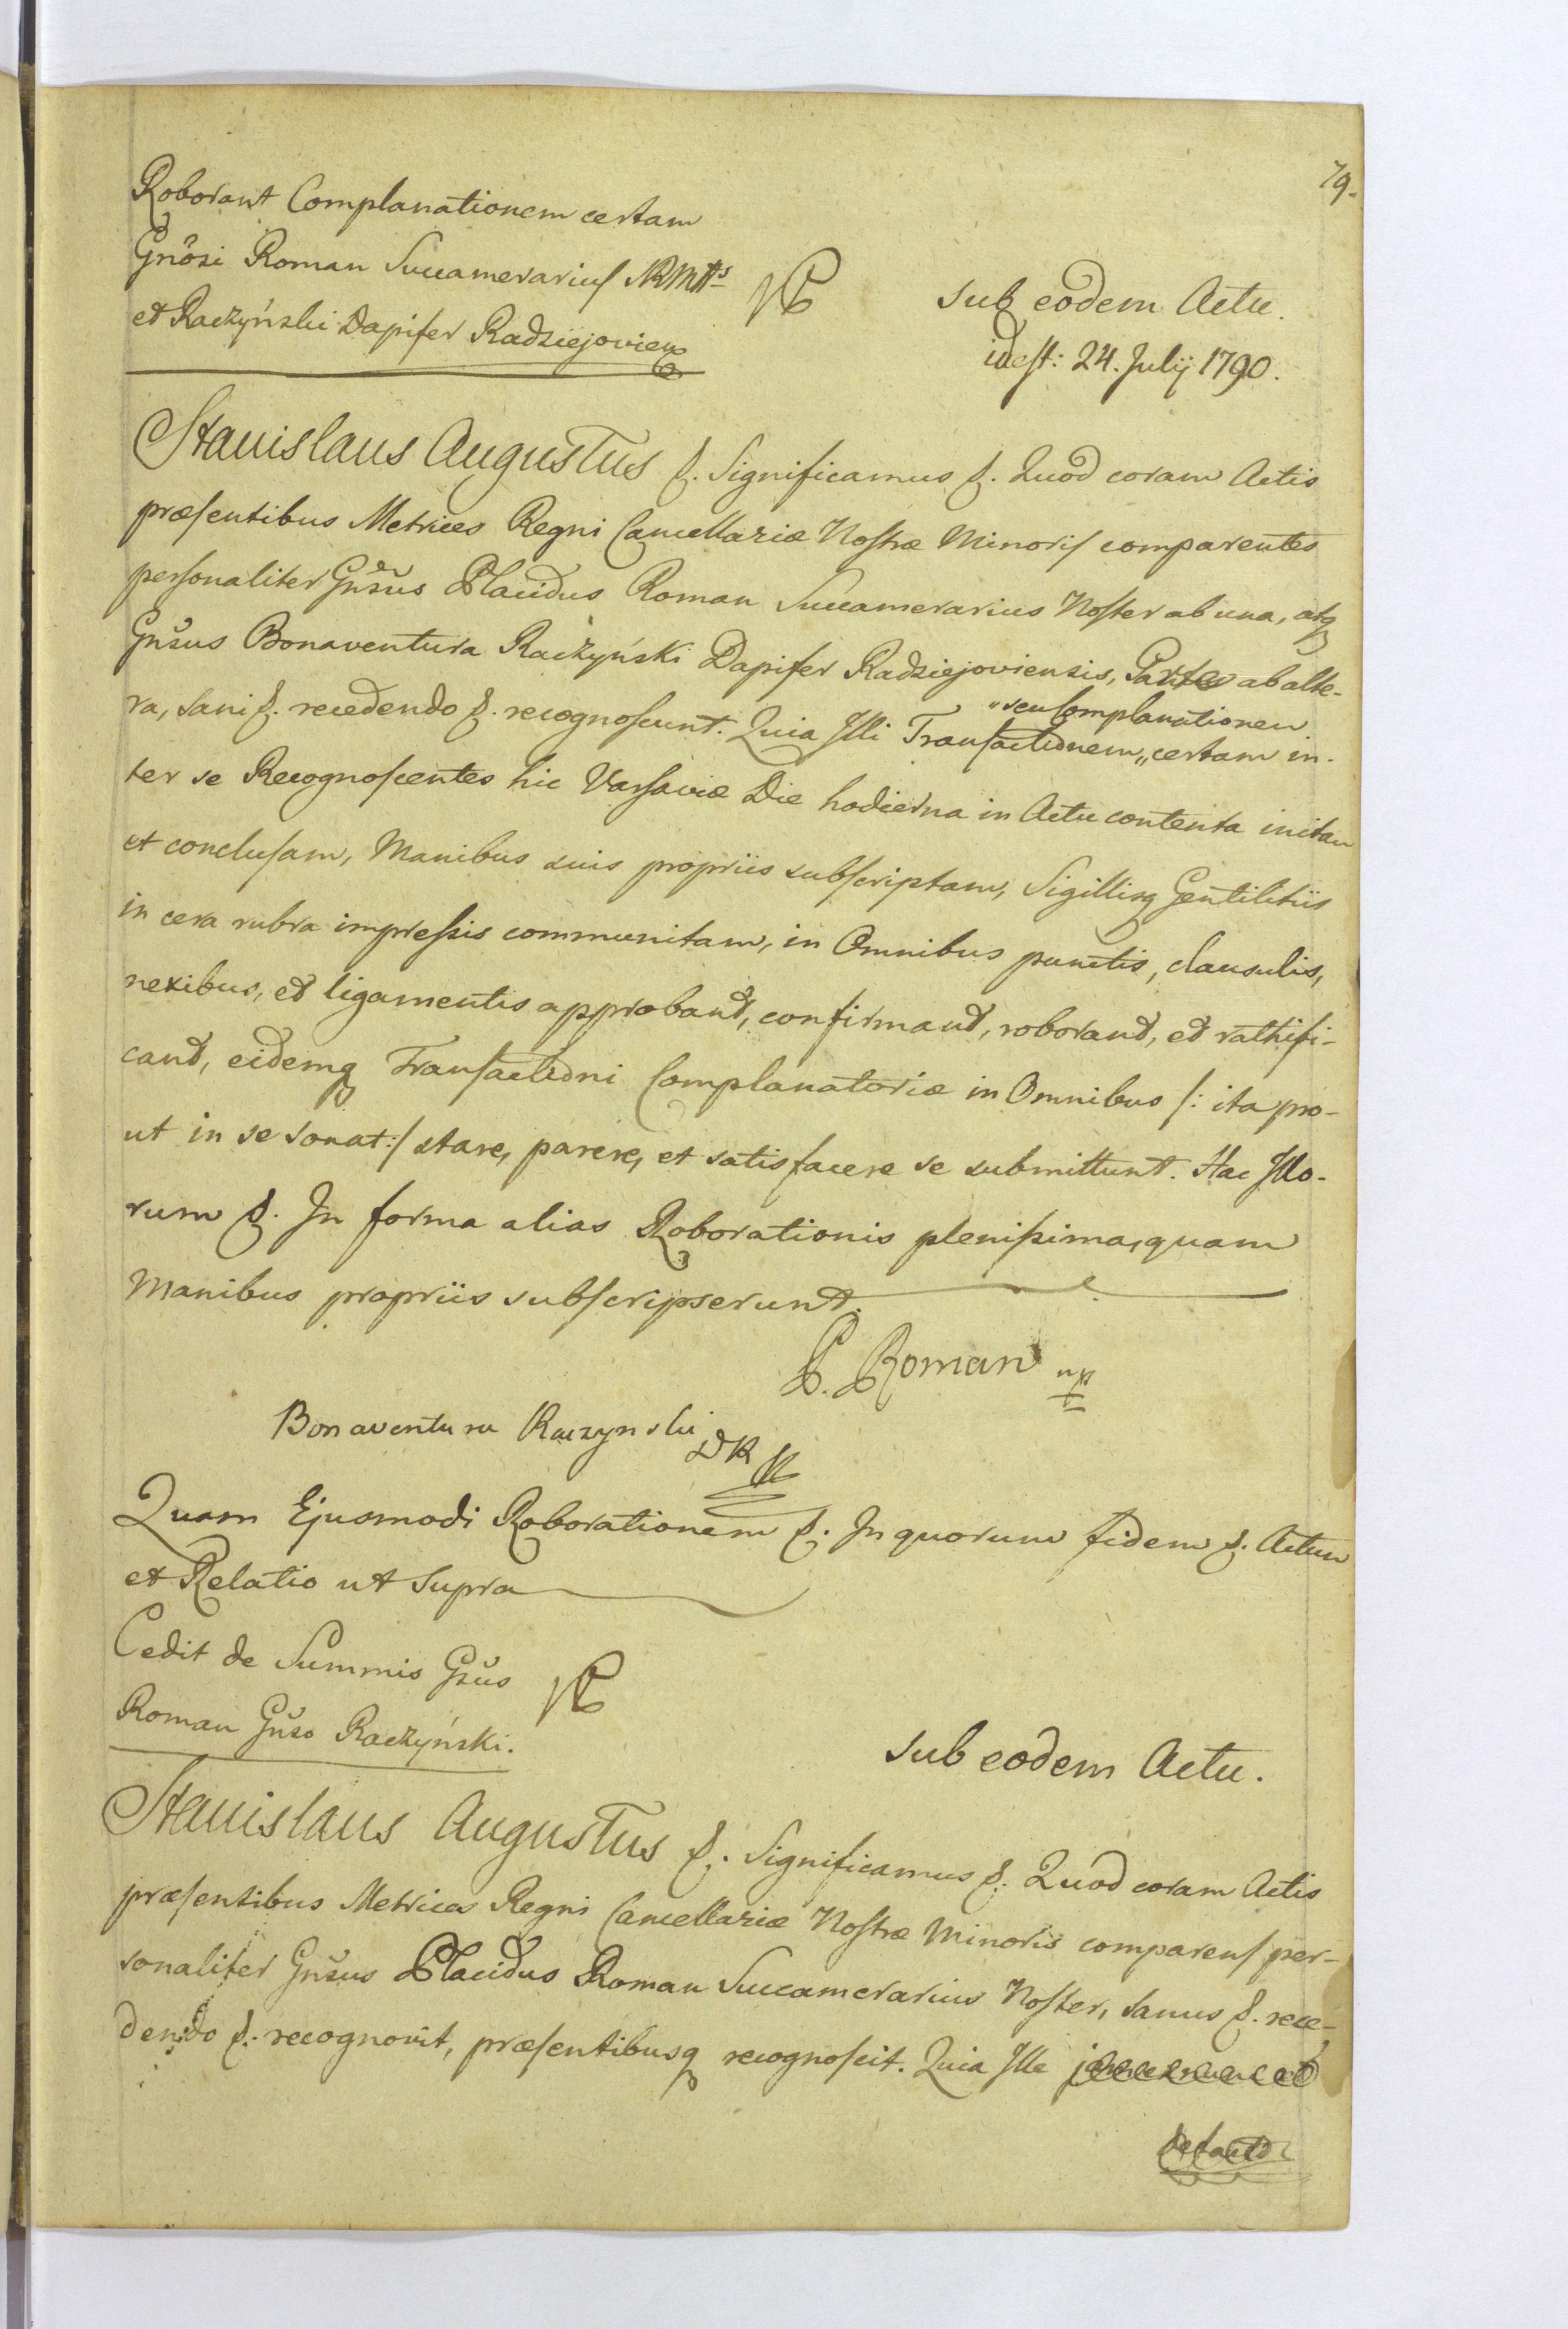 79.
Roborant Complanationem certam
Gnõsi Roman Succamerarius NRMtts
et Raczyński Dapifer Radziejoviens
Sub eodem Actu.
idest: 24. Julij 1790.
Stanislaus Augustus &. Significamus &. Quod coram Actis
præsentibus Metrices Regni Cancellariæ Nostræ Minoris comparentes
personaliter Gnšus Placidus Roman Succamerarius Noster ab una, atq
Gnšus Bonaventura Raczyński Dapifer Radziejoviensis, Partes ab alte-
"seu Complanationem
ra, sani &. recedendo &. recognoscunt. Quia Illi Transactionem „ certam in-
ter se Recognoscentes hic Varsaviæ Die hodierna in Actu contenta initam
et conclusam, Manibus suis propriis subscriptam, Sigillisq Gentilitiis
in cera rubra impressis communitam, in Omnibus punctis, clausulis,
nexibus, et ligamentis approbant, confirmant, roborant, et rathifi-
cant, eidemq Transactioni Complanatoriæ in Omnibus /: ita pro-
ut in se sonat :/ stare, parere, et satisfacere se submittunt. Hac Illo-
rum &. In forma alias Roborationis plenissima, quam
Manibus propriis subscripserunt.
P. Roman mp
Bonaventura Raczynski DR
Quam Ejusmodi Roborationem &. In quorum fidem &. Actum
et Relatio ut Supra
Cedit de Summis Gsůs
Roman Gnšo Raczyński.
Sub eodem Actu.
Stanislaus Augustus &. Significamus &. Quod coram Actis
præsentibus Metrices Regni Cancellariæ Nostræ Minoris comparens per-
sonaliter Gnšus Placidus Roman Succamerarius Noster, sanus &. rece-
dendo &. recognovit, præsentibusq recognoscit. Quia Ille